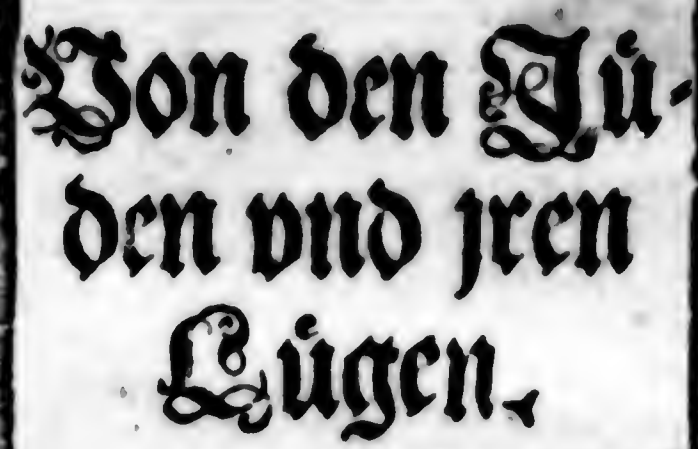 Von den Jü-
den vnd jren
Lügen.